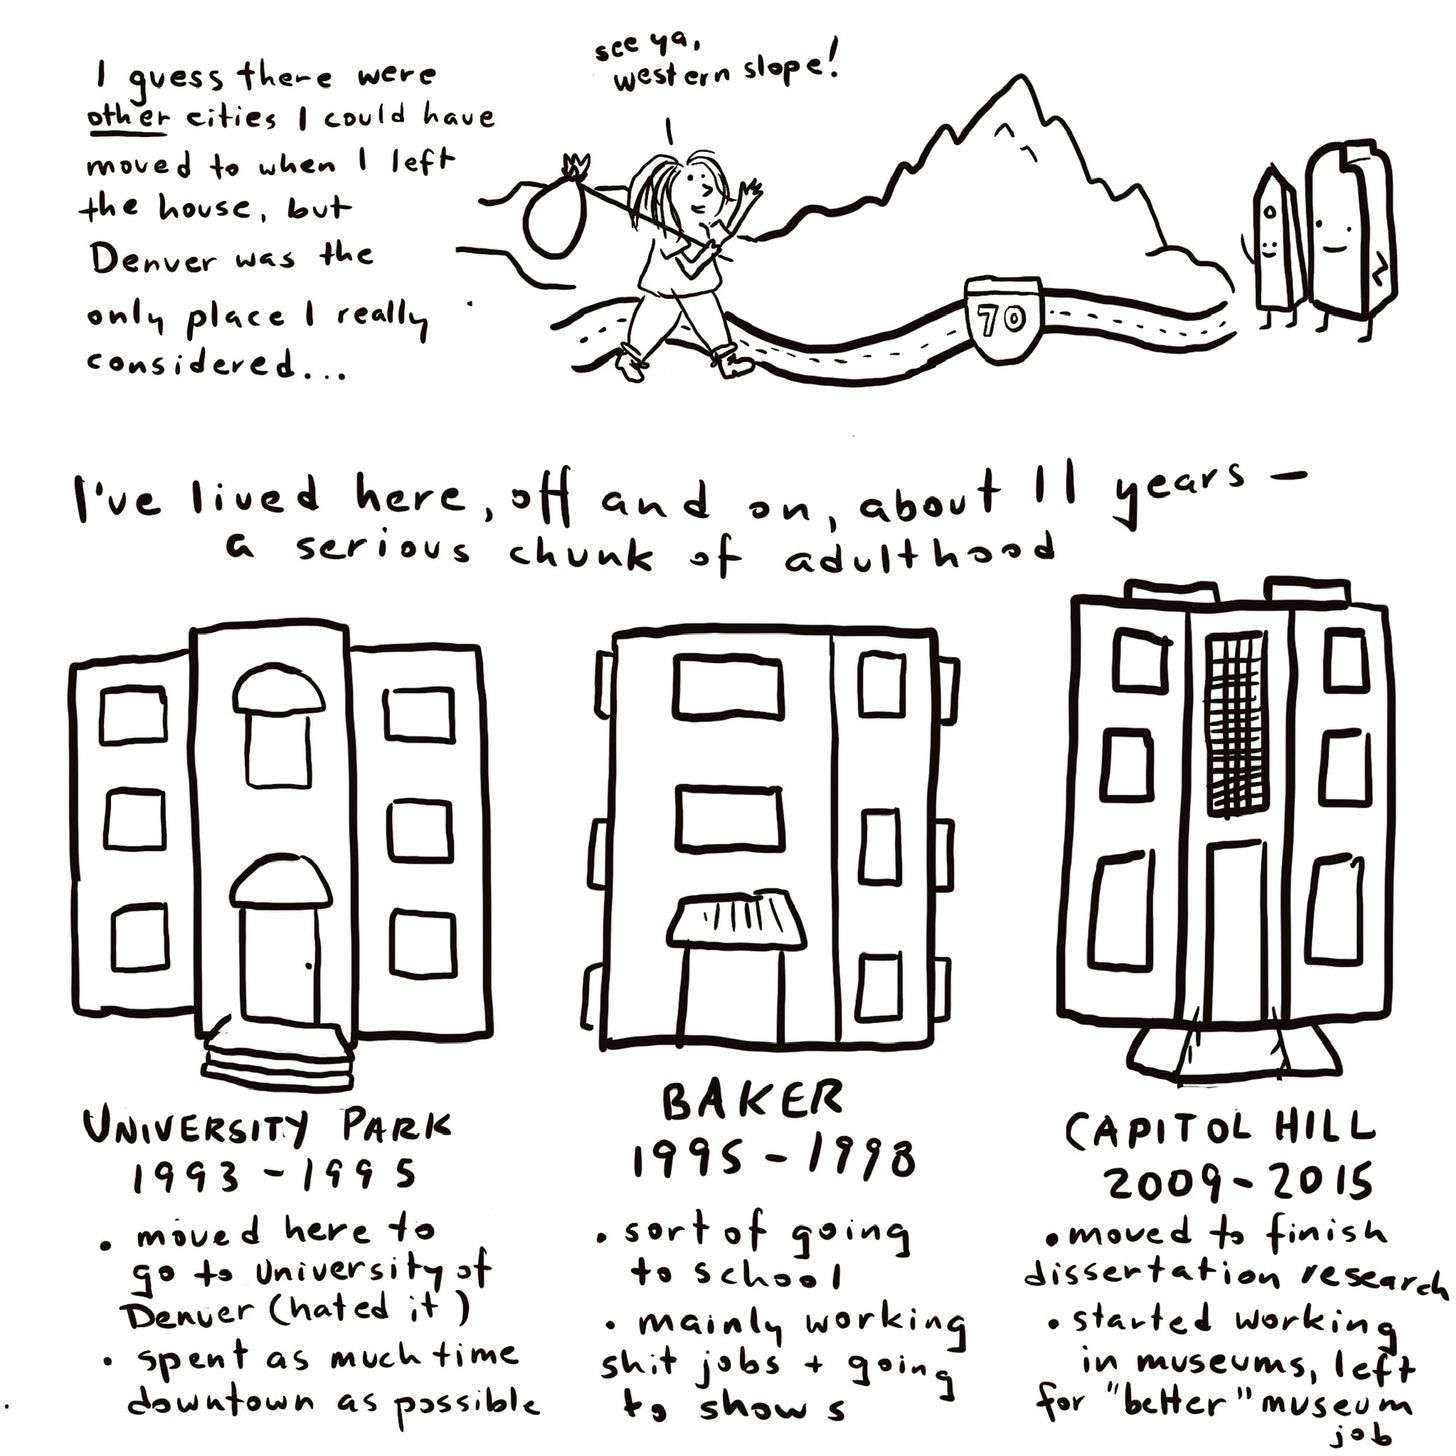 I guess there were
other cities I could have
moved to when I left
the house, but
Denver was the
only place I really
considered...
see ya,
western slope!
70
I've lived here, off and on, about 11 years –
a serious chunk of adulthood
UNIVERSITY PARK
1993-1995
• moved here to
go to University of
Denver (hated it)
• spent as much time
downtown as possible
BAKER
1995-1998
• sort of going
to school
• mainly working
shit jobs + going
to shows
CAPITOL HILL
2009-2015
• moved to finish
dissertation research
• started working
in museums, left
for "better" museum
job